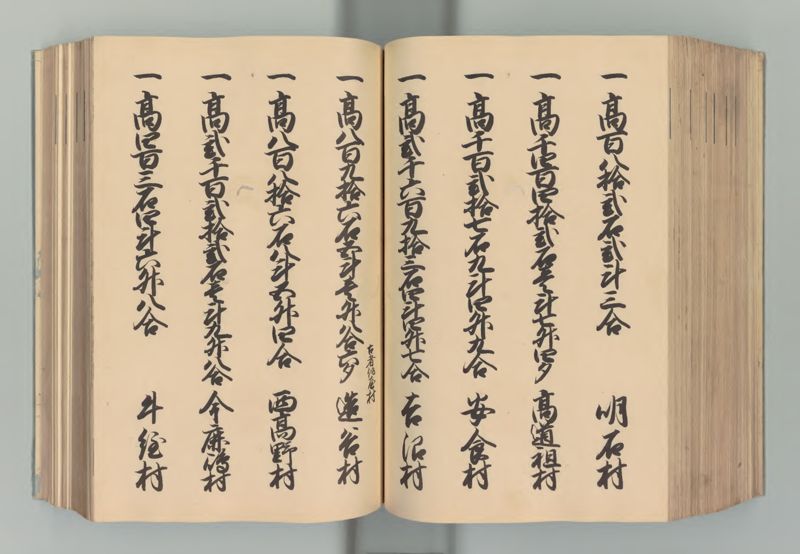 一 高百八拾弐石弐斗三合 明石村
一 高千四百四拾弐石壱斗七升四夕 高道祖村
一 高千百弐拾七石九斗四升九合 安食村
一 高弐千六百九拾三石四斗四升七合 吉沼村
古者 村
一 高八百九拾六石五斗壱升八合六夕 造谷村
一 高八百八拾六石八斗五升四合 西高野村
一 高弐千百弐拾弐石壱斗九升八合 今鹿嶋村
一 高四百三石四斗六升八合 牛縊村